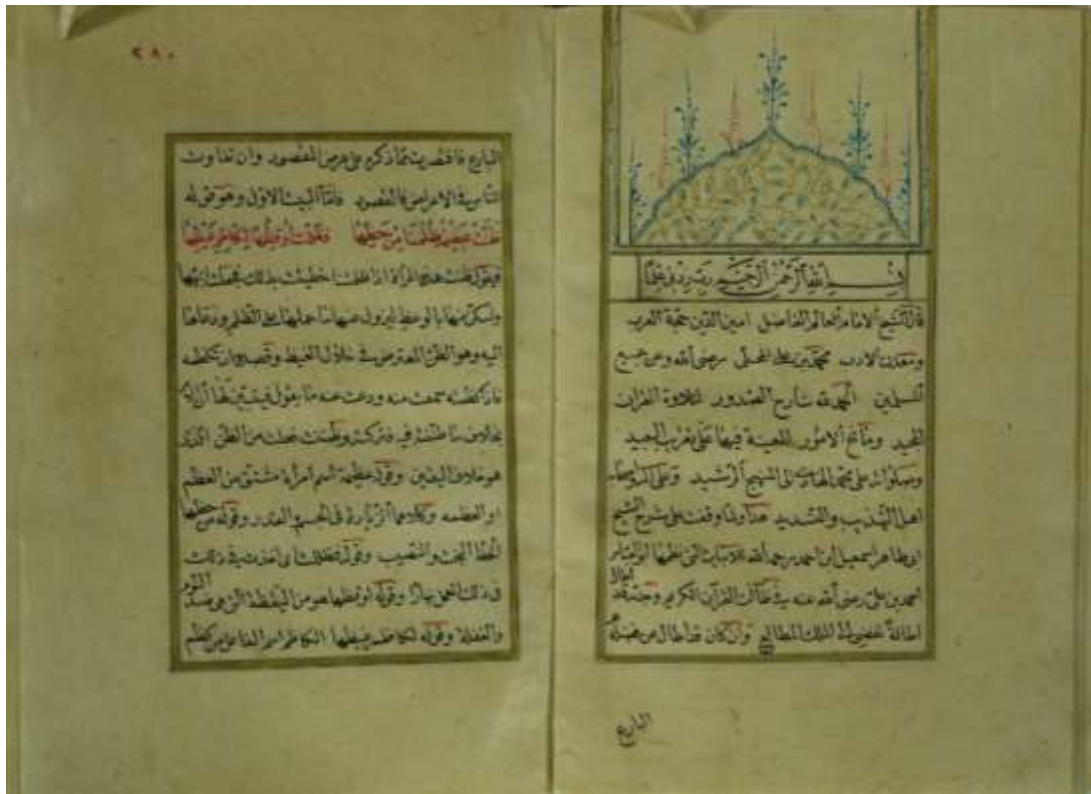 بسم الله الرحمن الرحيم رب زدني علما
قال الشيخ الامام العالم الفاضل امين الدين حجة العرب
ومعدن الادب محمد بن علي المحلى رضى الله وعن جميع
المسلمين الحمد لله شارح الصدور لتلاوة القران
المجيد ومانح الامور فيها على
وصلواته على محمد الهادى الى النهج الرشيد وعلى
اهل التهذيب والتسديد هذا ولما وقفت على شرح الشيخ
ابى طاهر اسمعيل ابن احمد رحمه الله للابيات التى نظمها ابو
احمد بن على رضى الله عنه فى ظاآت القرآن الكريم وجدته قد اطال
اطالة الى الملك المطالع وان كان قد اطال من فضله
البارع
٢٨٠
البارع فاقتصرت مما ذكره على غرض المقصود وان تفاوت
الناس فى الاغراض فالمقصود فاما البيت الاول وهو قوله
ظنت عظيمة ظلمنا من حظها فظللت اوقظها لكاظم غيظها
فيقول ظنت هذه المراة اذا ظلمت احظيت بذلك فجعلت انبهها
بالوعظ ليزول عنها ما حملها على الظلم ودعاها
اليه وهو الظن المعترض فى خلال الغيظ وقصدى ان تكظمه
فاذا كظمته سمعت منه ودعت عنه ما يقول
بخلاف ما ظنته فيه فتركته وظنت تحلت من الظن الذى
هو خلاف اليقين وقوله عظيمة اسم امراة مشتق من العظم
او العظمه وكلاهما الزيادة فى الجسم والقدر وقوله من حظها
الحظ البخت والنصيب وقوله فظللت اى اخذت فى ذلك
فى ذلك اعمل نهارا وقوله اوقظها هو من اليقظة التى هى ضد النوم
والغفلة وقوله لكاظم غيظها الكاظم اسم الفاعل من كظم